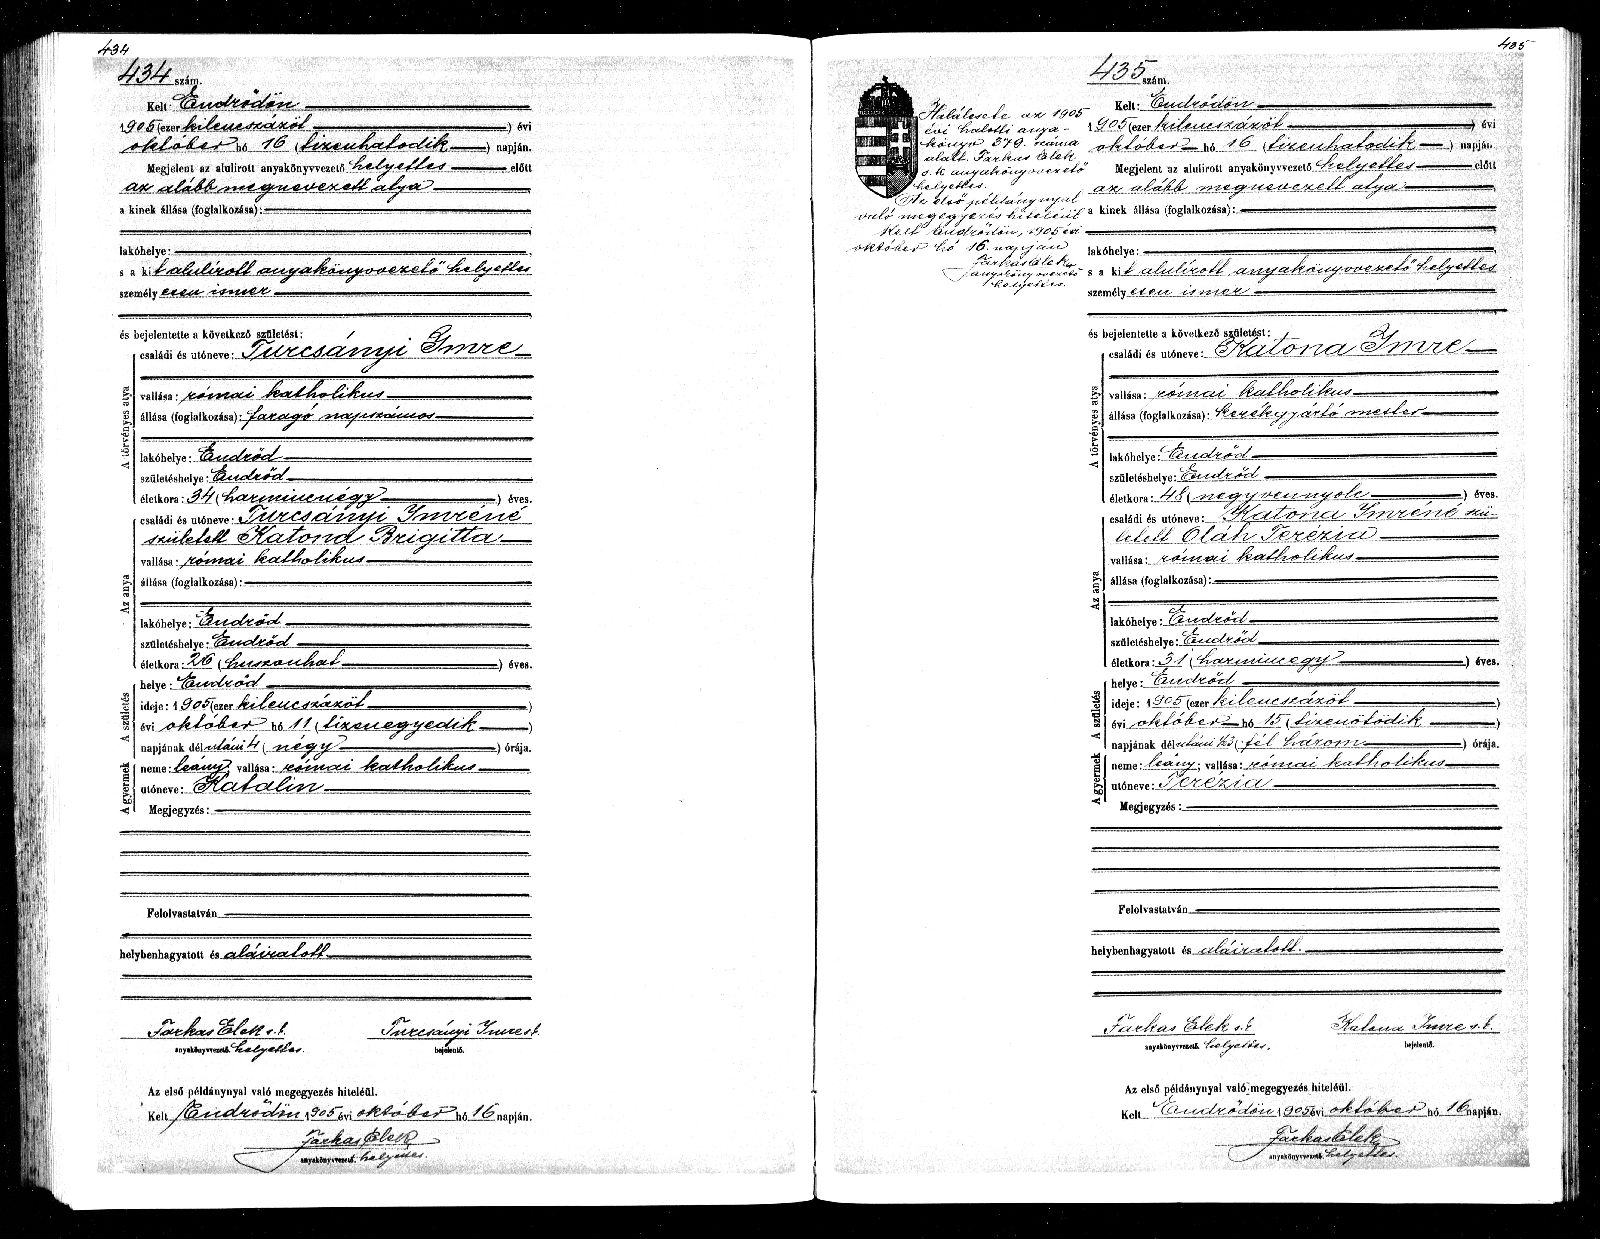 434
434 szám.
Kelt: Endrődön
1905 (ezer kilencszázöt) évi
október hó 16 (tizenhatodik) napján.
Megjelent az alulirott anyakönyvvezető helyettes előtt
az alább megnevezett atya
a kinek állása (foglalkozása):
lakóhelye:
s a kit alulírott anyakönyvvezető helyettes
személyesen ismer
és bejelentette a következő születést:
A törvényes atya
családi és utóneve: Turcsányi Imre
vallása: római katholikus
állása (foglalkozása): faragó napszámos
lakóhelye: Endrőd
születéshelye: Endrőd
életkora: 34 (harmincnégy) éves.
Az anya
családi és utóneve: Turcsányi Imréné
született Katona Brigitta
vallása: római katholikus
állása (foglalkozása):
lakóhelye: Endrőd
születéshelye: Endrőd
életkora: 26 (huszonhat) éves.
A születés
helye: Endrőd
ideje: 1905 (ezer kilencszázöt)
évi október hó 11 (tizenegyedik)
napjának délutáni 4 (négy) órája.
A gyermek
neme: leány; vallása: római katholikus
utóneve: Katalin
Megjegyzés:
Felolvastatván
helybenhagyatott és aláiratott
Farkas Elek s.k. Turcsányi Imre s.k.
anyakönyvvezető helyettes. bejelentő.
Az első példánynyal való megegyezés hiteléül.
Kelt Endrődön 1905 évi október hó 16 napján.
Farkas Elek
anyakönyvvezető helyettes.
435
435 szám.
Halálesete az 1905
évi halotti anya-
könyv 379. száma
alatt. Farkas Elek
s.k. anyakönyvvezető
helyettes.
Az első példánynyal
való megegyezés hiteléül
Kelt Endrődön, 1905 évi
október hó 16. napján
Farkas Elek
anyakönyvvezető
helyettes.
Kelt: Endrődön
1905 (ezer kilencszázöt) évi
október hó 16 (tizenhatodik) napján.
Megjelent az alulirott anyakönyvvezető helyettes előtt
az alább megnevezett atya
a kinek állása (foglalkozása):
lakóhelye:
s a kit alulírott anyakönyvvezető helyettes
személyesen ismer
és bejelentette a következő születést:
A törvényes atya
családi és utóneve: Katona Imre
vallása: római katholikus
állása (foglalkozása): kerékgyártó mester
lakóhelye: Endrőd
születéshelye: Endrőd
életkora: 48 (negyvennyolc) éves.
Az anya
családi és utóneve: Katona Imréné szü-
letett Oláh Terézia
vallása: római katholikus
állása (foglalkozása):
lakóhelye: Endrőd
születéshelye: Endrőd
életkora: 31 (harmincegy) éves.
A születés
helye: Endrőd
ideje: 1905 (ezer kilencszázöt)
évi október hó 15 (tizenötödik)
napjának délutáni ½3 (fél három) órája.
A gyermek
neme: leány; vallása: római katholikus
utóneve: Terézia
Megjegyzés:
Felolvastatván
helybenhagyatott és aláiratott.
Farkas Elek s.k. Katona Imre s.k.
anyakönyvvezető helyettes. bejelentő.
Az első példánynyal való megegyezés hiteléül.
Kelt Endrődön 1905 évi október hó 16 napján.
Farkas Elek
anyakönyvvezető helyettes.